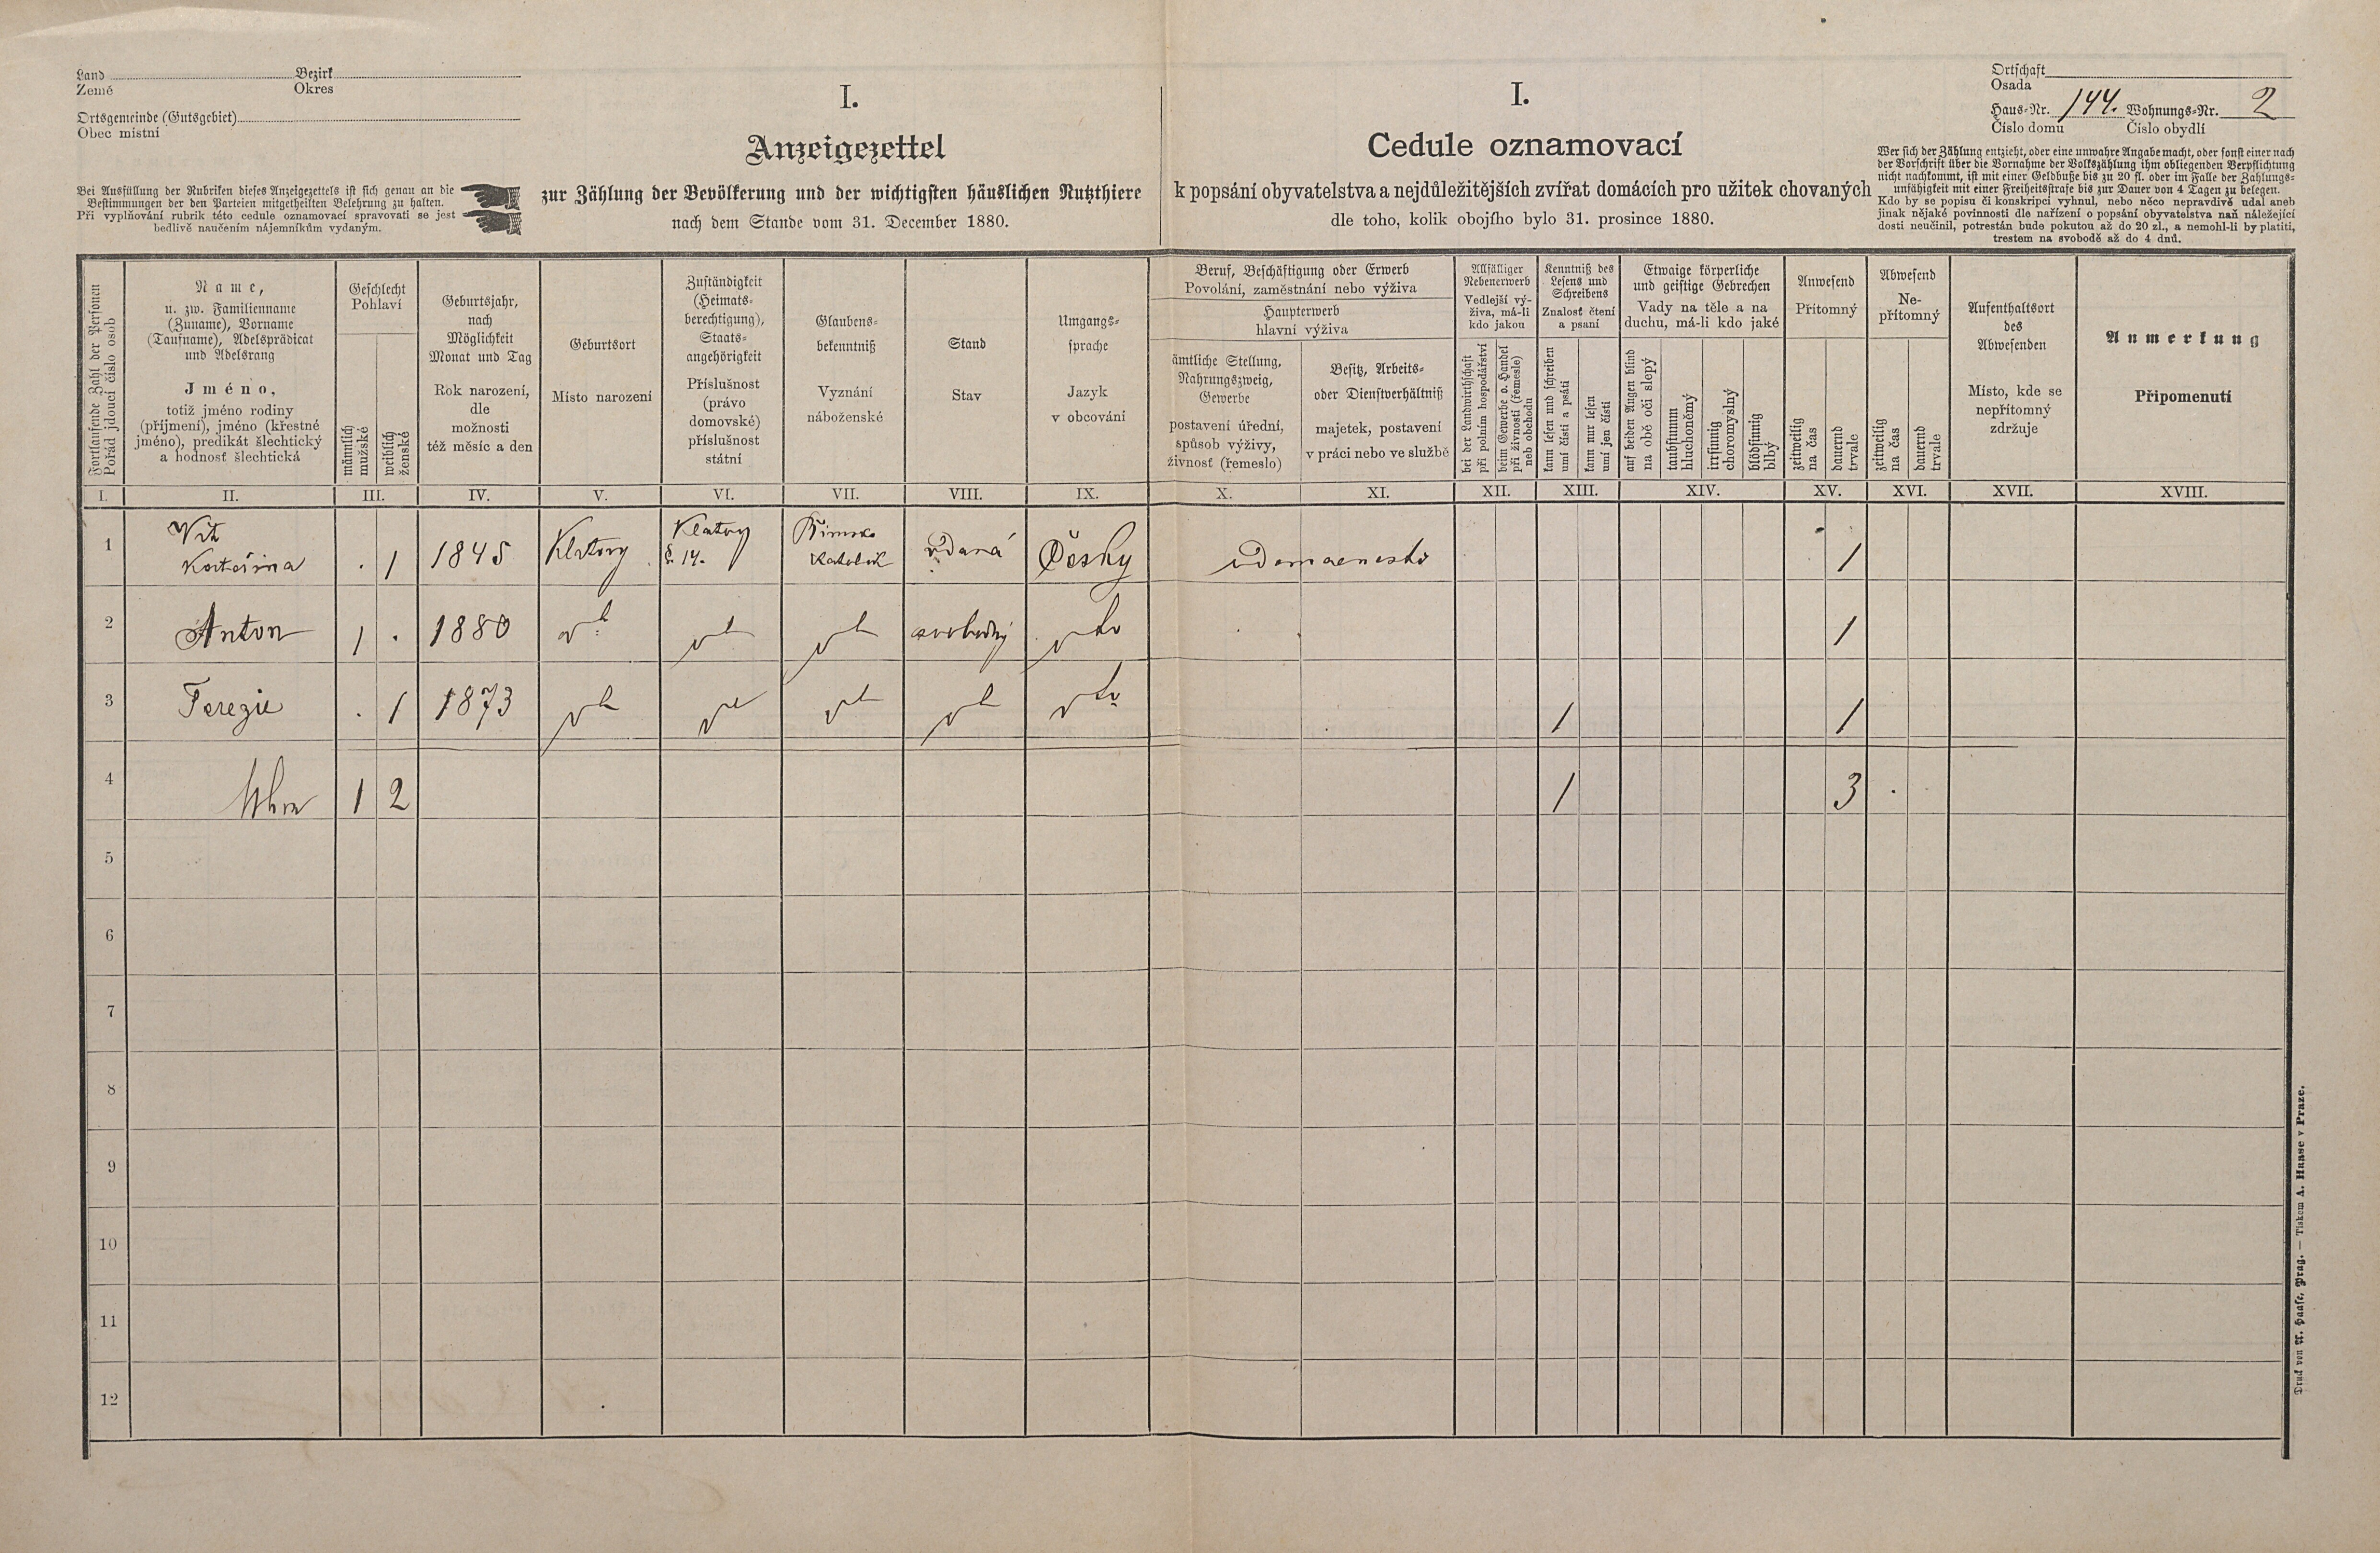 Land Bezirk
Země Okres
Ortsgemeinde (Gutsgebiet)
Obec místní
Bei Ausfüllung der Rubriken dieses Anzeigezettels ist sich genau an die
Bestimmungen der den Parteien mitgetheilten Belehrung zu halten.
Při vyplňování rubrik této cedule oznamovací spravovati se jest
bedlivě naučením nájemníkům vydaným.
I.
Anzeigezettel
zur Zählung der Bevölkerung und der wichtigsten häuslichen Nutzthiere
nach dem Stande vom 31. December 1880.
I.
Cedule oznamovací
k popsání obyvatelstva a nejdůležitějších zvířat domácích pro užitek chovaných
dle toho, kolik obojího bylo 31. prosince 1880.
Ortschaft
Osada
Haus-Nr. 144. Wohnungs-Nr. 2
Číslo domu Číslo obydlí
Wer sich der Zählung entzieht, oder eine unwahre Angabe macht, oder sonst einer nach
der Vorschrift über die Vornahme der Volkszählung ihm obliegenden Verpflichtung
nicht nachkommt, ist mit einer Geldbuße bis zu 20 fl. oder im Falle der Zahlungs-
unfähigkeit mit einer Freiheitsstrafe bis zur Dauer von 4 Tagen zu belegen.
Kdo by se popisu či konskripci vyhnul, nebo něco nepravdivě udal aneb
jinak nějaké povinnosti dle nařízení o popsání obyvatelstva naň náležející
dosti neučinil, potrestán bude pokutou až do 20 zl., a nemohl-li by platiti,
trestem na svobodě až do 4 dnů.
Fortlaufende Zahl der Personen
Pořád jdoucí číslo osob
Name,
u. zw. Familienname
(Zuname), Vorname
(Taufname), Adelsprädicat
und Adelsrang
Jméno,
totiž jméno rodiny
(příjmení), jméno (křestné
jméno), predikát šlechtický
a hodnosť šlechtická
Geschlecht
Pohlaví
männlich
mužské
weiblich
ženské
Geburtsjahr,
nach
Möglichkeit
Monat und Tag
Rok narození,
dle
možnosti
též měsíc a den
Geburtsort
Místo narození
Zuständigkeit
(Heimats-
berechtigung),
Staats-
angehörigkeit
Příslušnost
(právo
domovské)
příslušnost
státní
Glaubens-
bekenntniß
Vyznání
náboženské
Stand
Stav
Umgangs-
sprache
Jazyk
v obcování
Beruf, Beschäftigung oder Erwerb
Povolání, zaměstnání nebo výživa
Haupterwerb
hlavní výživa
ämtliche Stellung,
Nahrungszweig,
Gewerbe
postavení úřední,
spůsob výživy,
živnosť (řemeslo)
Besitz, Arbeits-
oder Dienstverhältniß
majetek, postavení
v práci nebo ve službě
Allfälliger
Nebenerwerb
Vedlejší vý-
živa, má-li
kdo jakou
bei der Landwirthschaft
při polním hospodářství
beim Gewerbe o. Handel
při živnosti (řemesle)
neb obchodu
Kenntniß des
Lesens und
Schreibens
Znalost čtení
a psaní
kann lesen und schreiben
umí čísti a psáti
kann nur lesen
umí jen čísti
Etwaige körperliche
und geistige Gebrechen
Vady na těle a na
duchu, má-li kdo jaké
auf beiden Augen blind
na obě oči slepý
taubstumm
hluchoněmý
irrsinnig
choromyslný
blödsinnig
blbý
Anwesend
Přítomný
zeitweilig
na čas
dauernd
trvale
Abwesend
Ne-
přítomný
zeitweilig
na čas
dauernd
trvale
Aufenthaltsort
des
Abwesenden
Místo, kde se
nepřítomný
zdržuje
Anmerkung
Připomenutí
I. II. III. IV. V. VI. VII. VIII. IX. X. XI. XII. XIII. XIV. XV. XVI. XVII. XVIII.
Vít Klatovy Římsko
1 Kateřina . 1 1845 Klatovy č 14. Katolík vdaná Česky v Domacnosti 1
2 Anton 1 . 1880 svobodný 1
3 Terezie . 1 1873 1 1
4 1 2 1 3 .
5
6
7
8
9
10
11
12
Druck von A. Haase, Prag. — Tiskem A. Haase v Praze.